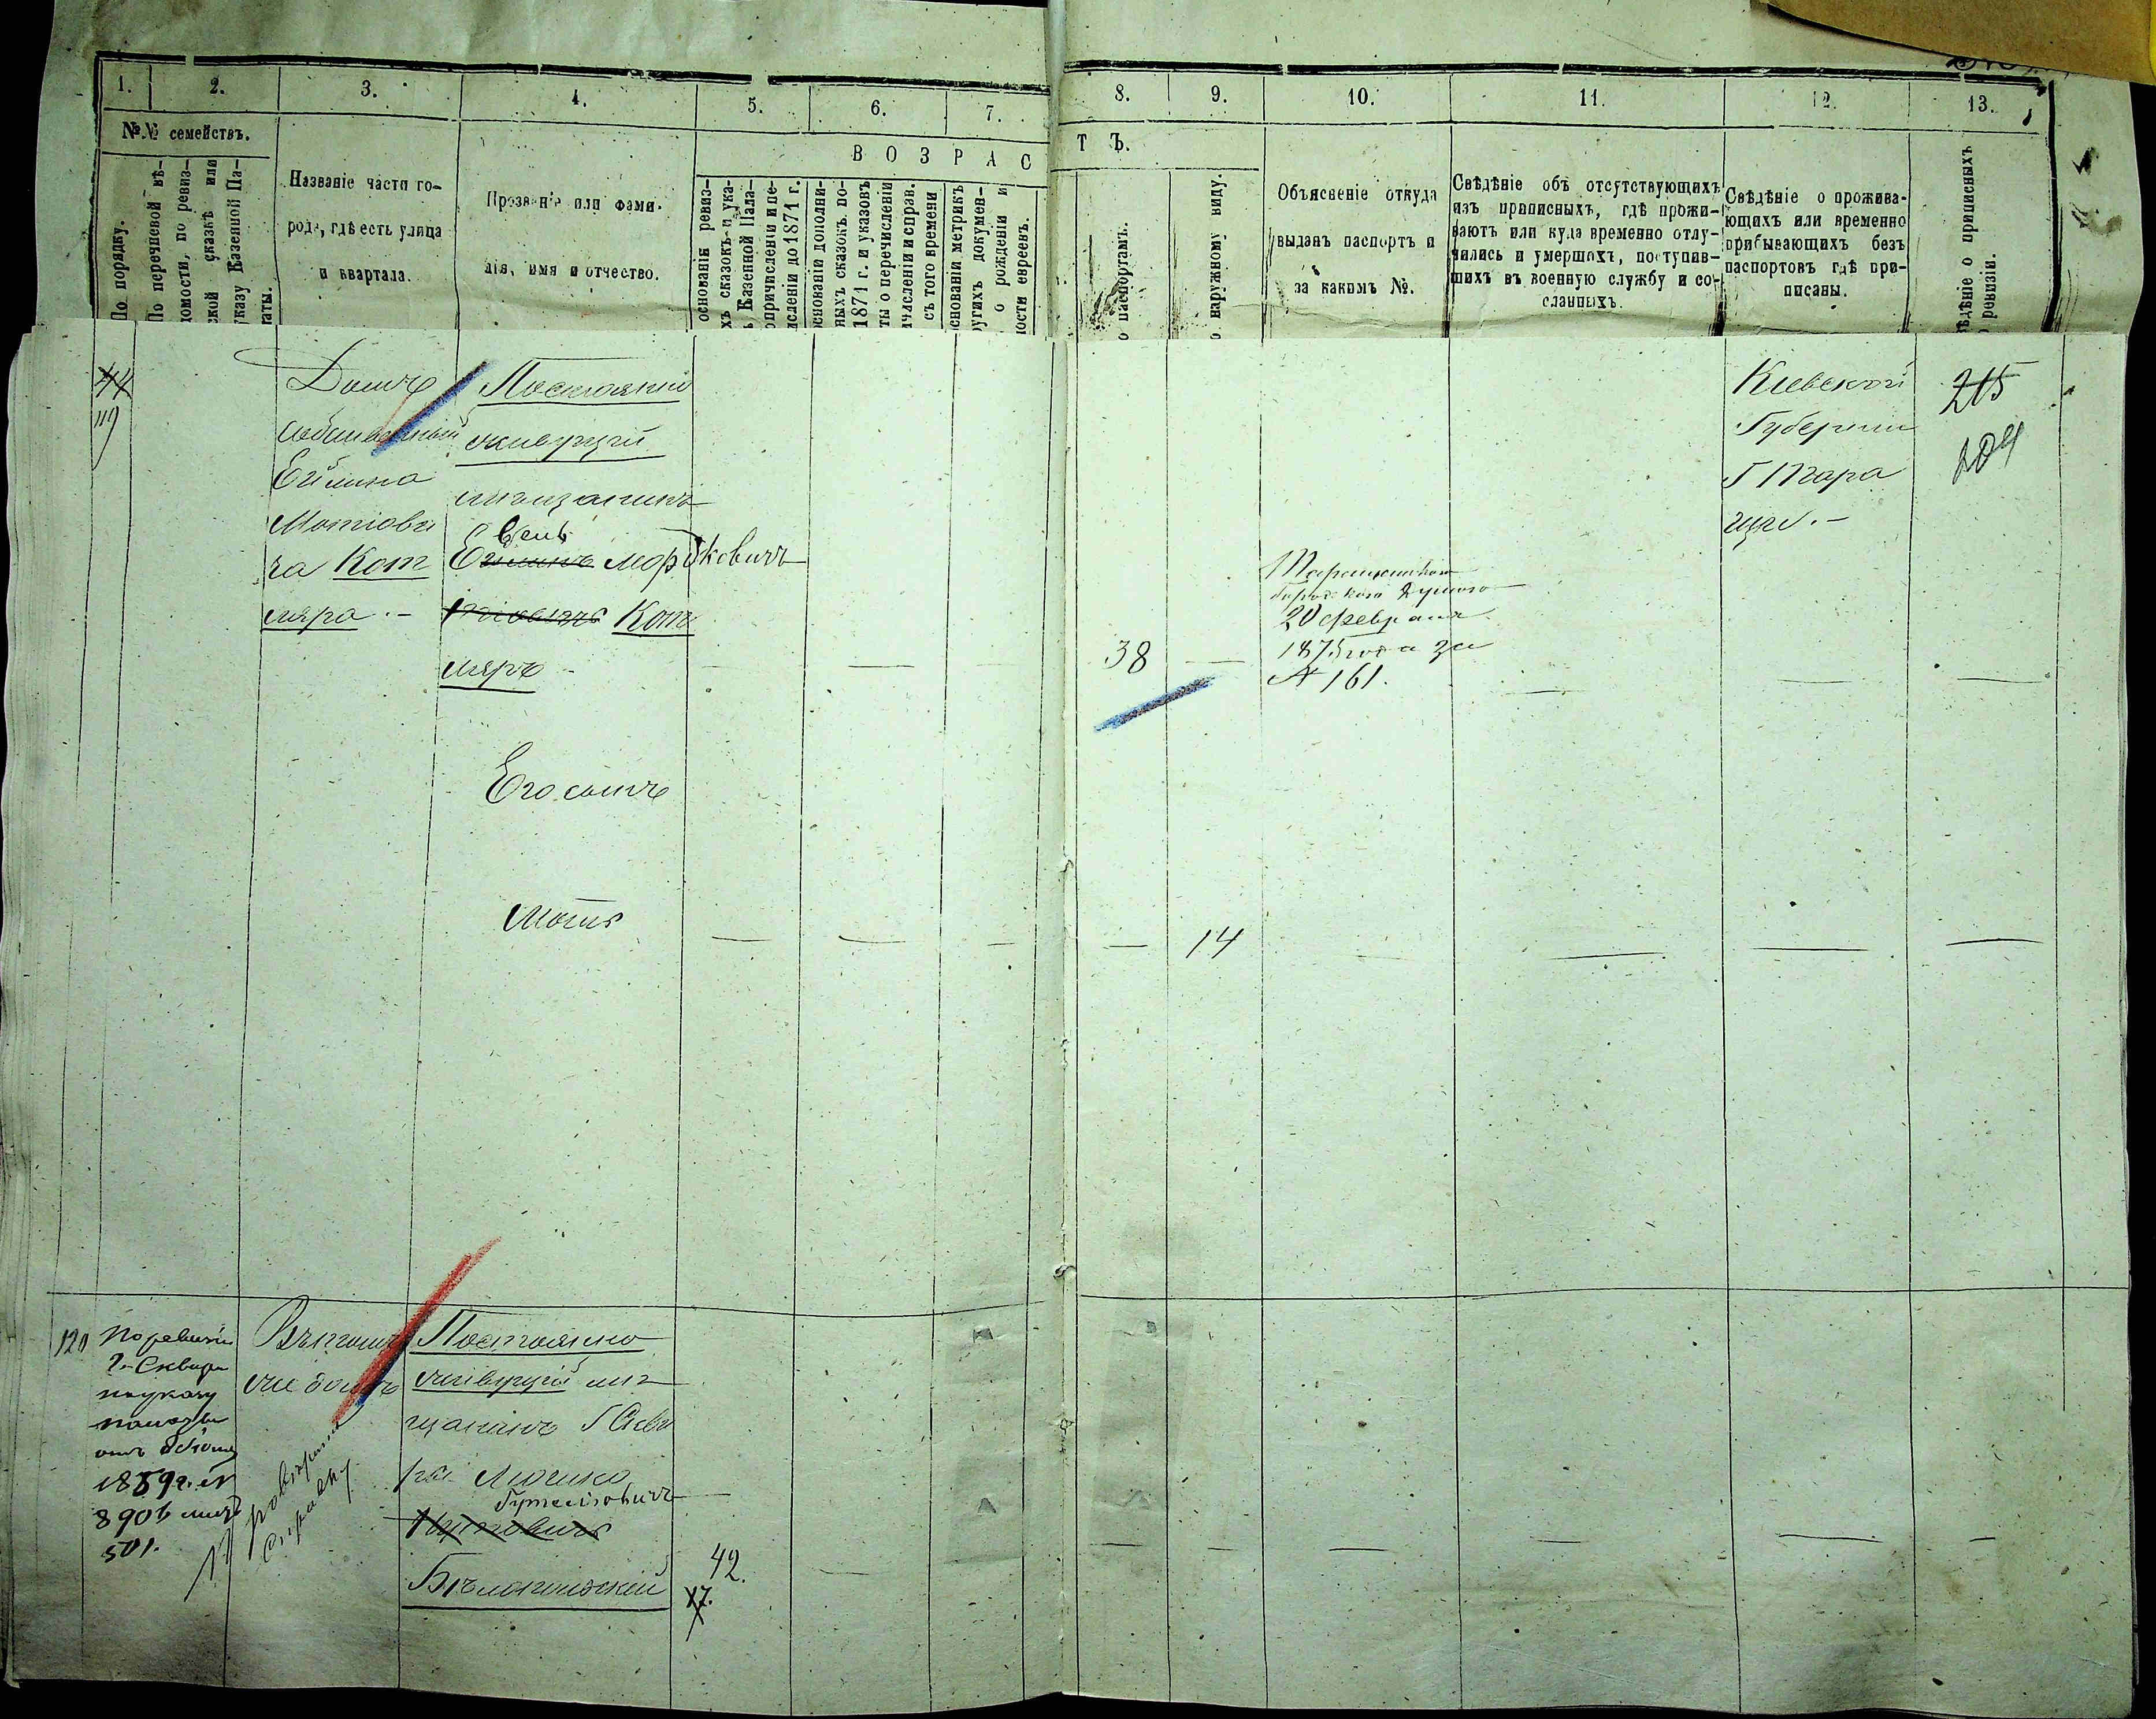 1.
2.
3.
4.
5.
6.
7.
8.
9.
10.
11.
12.
13.
№№ семействъ.
По порядку.
По перечневой вѣ-
домости, по ревиз-
ской сказкѣ или
указу Казенной Па-
латы.
Названіе части го-
рода, гдѣ есть улица
и квартала.
Прозваніе или фами-
лія, имя и отчество.
ВОЗРАС
ТЪ.
основаніи ревиз-
хъ сказокъ и ука-
ъ Казенной Пала-
опричисленіи и пе-
ислені и до 1871 г.
основаніи дополни-
ныхъ сказокъ по-
1871 г. и указовъ
ты о перечисленіи
ичисленіи и справ.
съ того времени
основаніи метрикъ
ругихъ докумен-
о рожденіи и
ности евреевъ.
о паспортамъ.
о наружному виду.
Объясненіе откуда
выданъ паспортъ и
за какимъ №.
Свѣдѣніе объ отсутствующихъ
изъ приписныхъ, гдѣ прожи-
ваютъ или куда временно отлу-
чились и умершихъ, поступив-
шихъ въ военную службу и со-
сланныхъ.
Свѣдѣніе о прожива-
ющихъ или временно
прибывающихъ безъ
паспортовъ гдѣ при-
писаны.
ѣдѣніе о приписныхъ
ревизіи.
119
Домъ
собственный
Мотіови
ча Кот
ляра.-
Постоянно
живущій
мѣщанинъ
Мордковичъ
Котъ
ляръ
38
Таращанской
Городской Думою
20 февраля
1875 года за
№ 161.
Кіевской
Губерніи
Г Тара
щи.-
215
204
Его сынъ
14
120
По ревизіи
г. Сквира
по указу
палаты
1859 г. №
890 в
501.
Постоянно
живущій мѣ
щанинъ Г Скви
ры
42.
17.